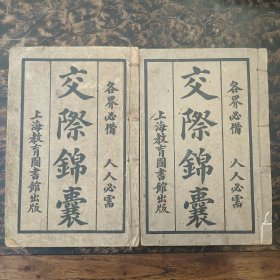 各界必備 人人必需
交際錦囊
上海教育圖書館出版
各界必備 人人必需
交際錦囊
上海教育圖書館出版